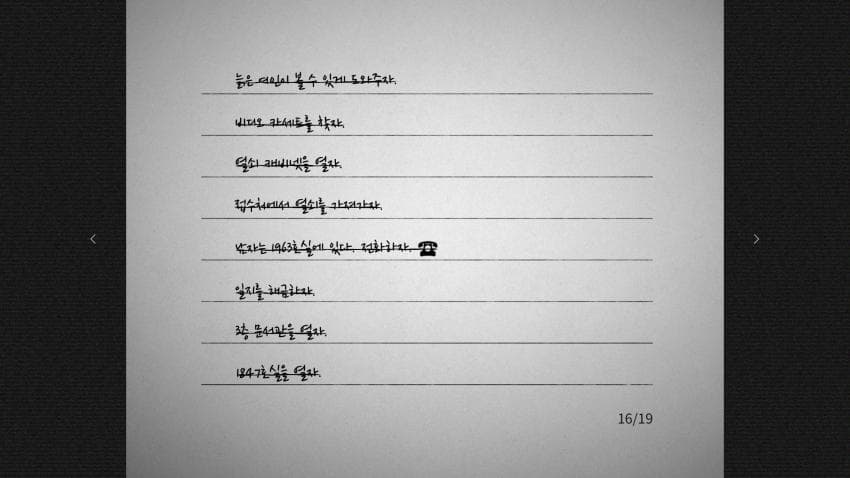 늙은 여인이 볼 수 있게 도와주자.
비디오 카세트를 찾자.
열쇠 캐비넷을 열자.
접수처에서 열쇠를 가져가자.
남자는 1963호실에 있다. 전화하자.
일지를 해금하자.
3층 문서관을 열자.
1847호실을 열자.
16/19